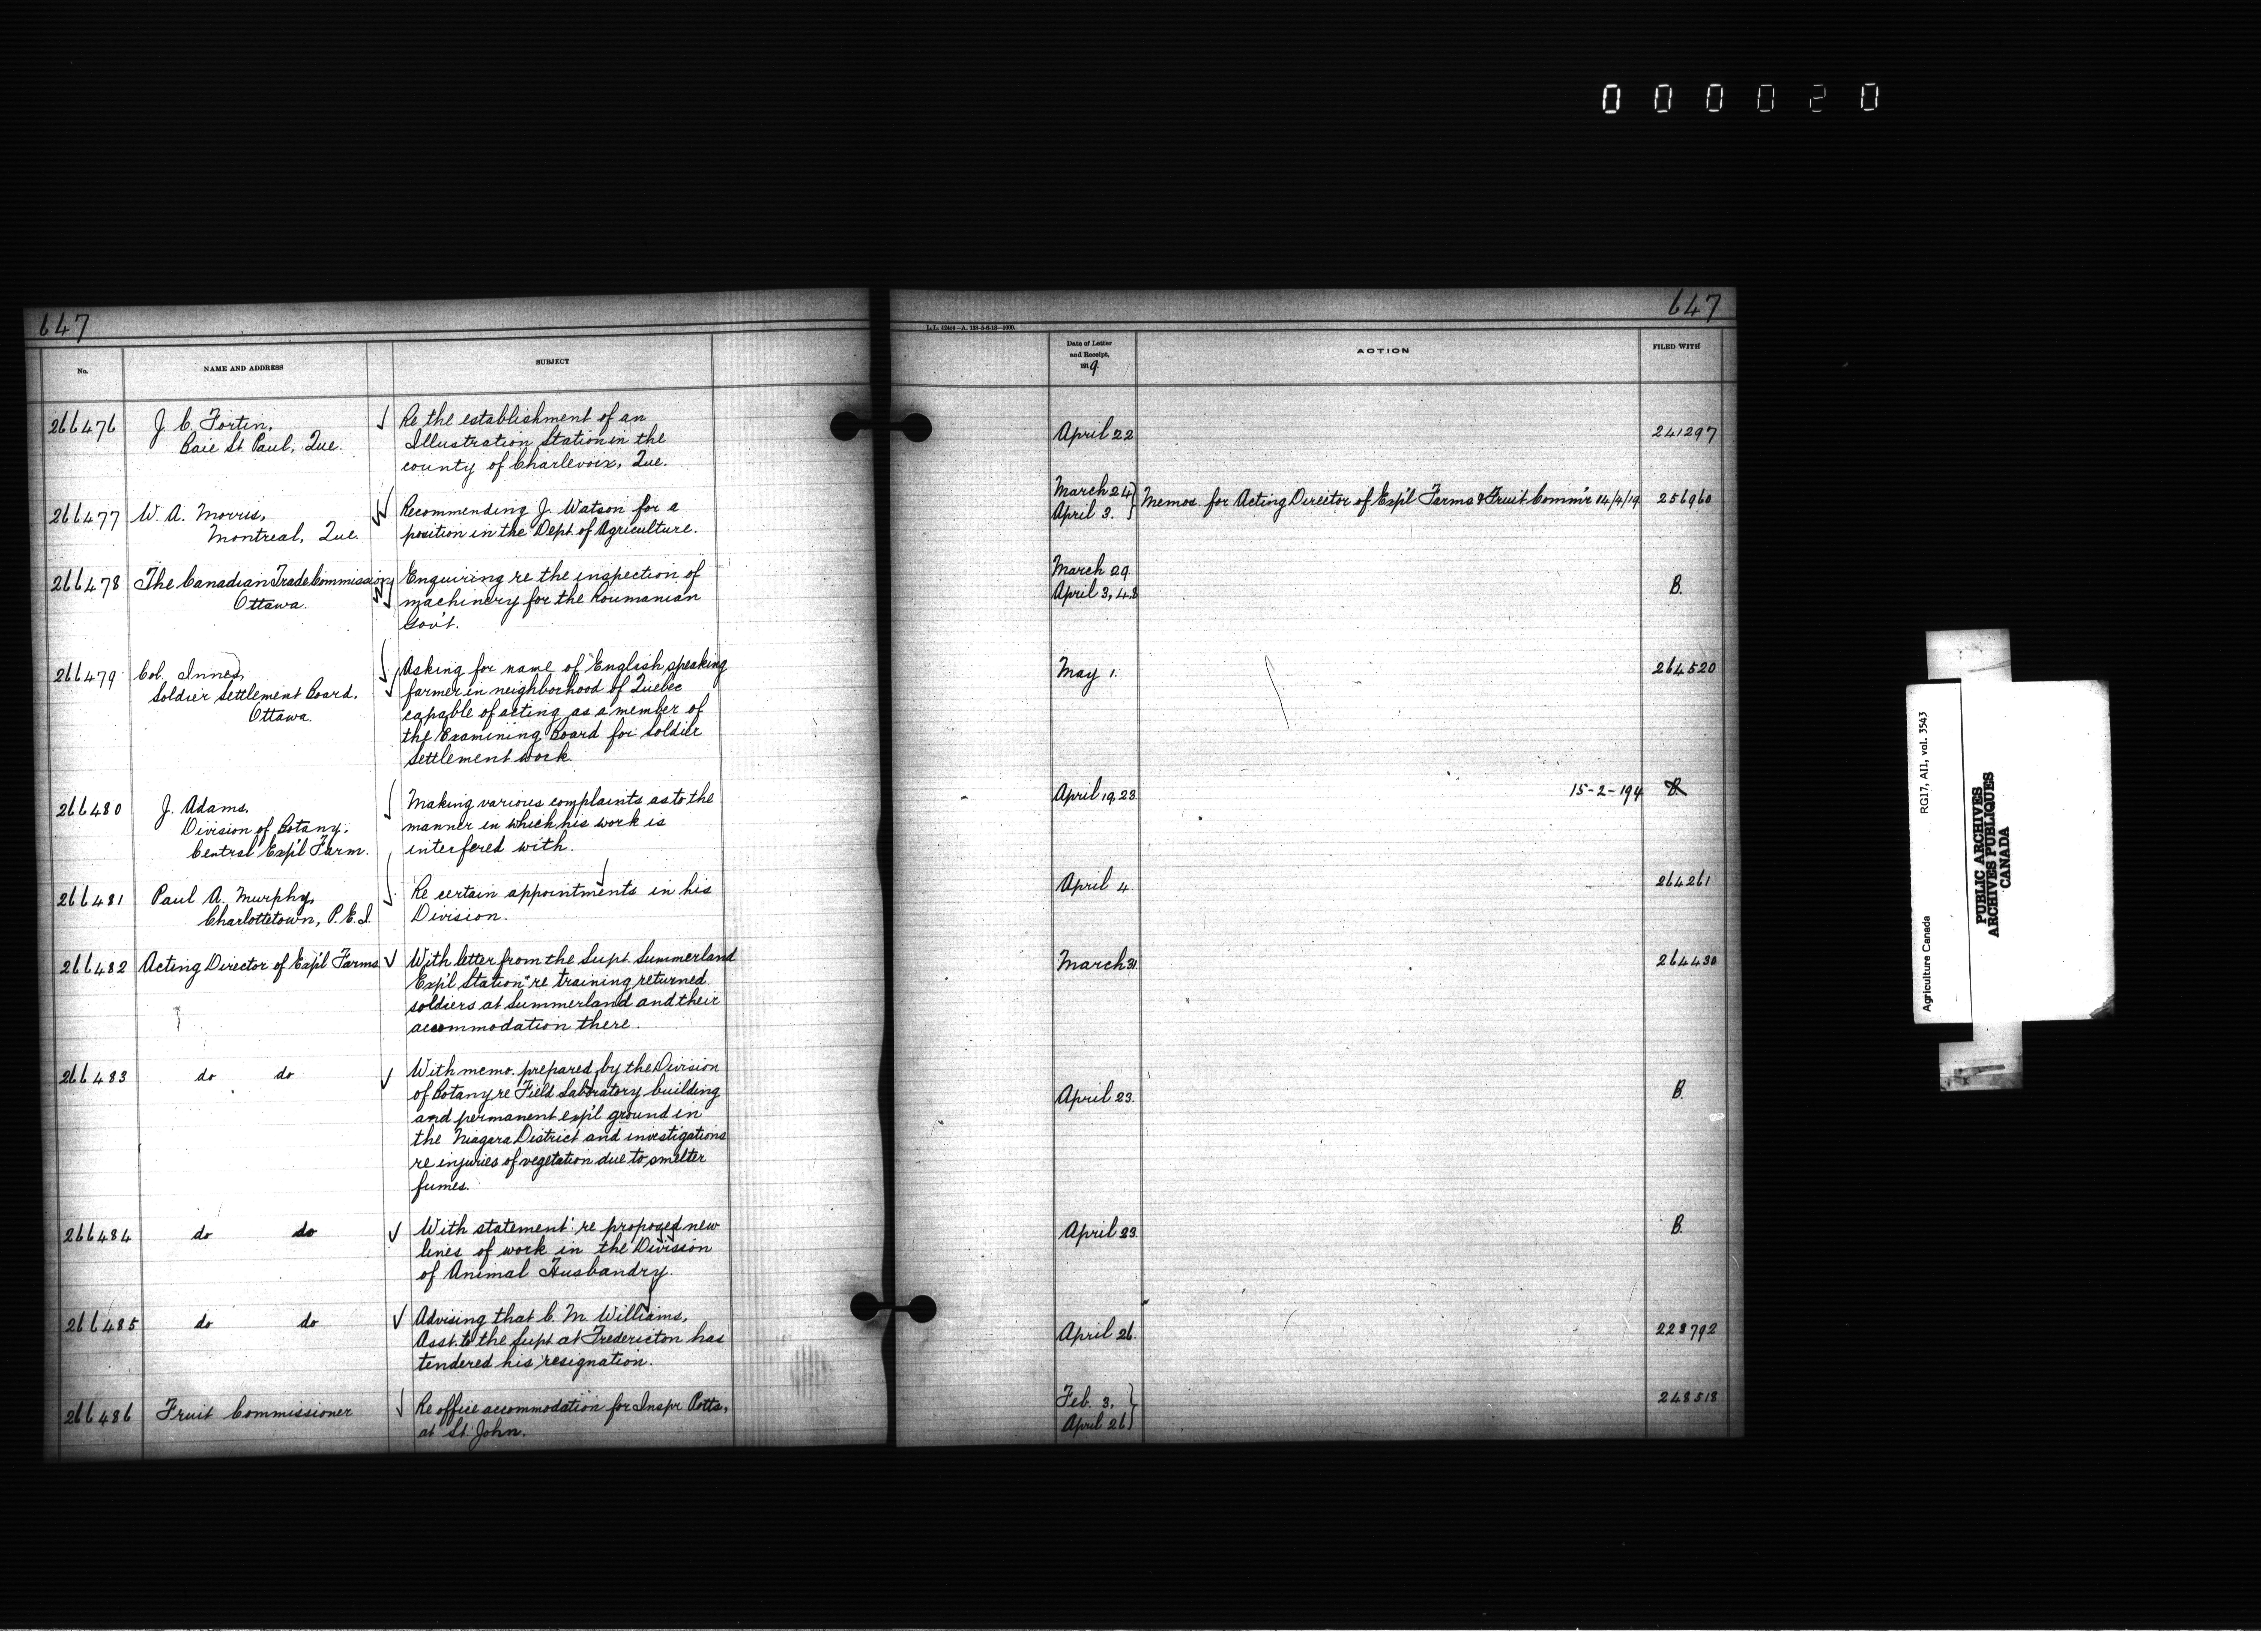 000020
647
No.
NAME AND ADDRESS
SUBJECT
266476
J. C. Fortin,
Baie St. Paul, Que.
Re the establishment of an
Illustration Station in the
county of Charlevoix, Que.
266477
W. A. Morris,
Montreal, Que.
Recommending J. Watson for a
position in the Dept. of Agriculture.
266478
The Canadian Trade Commission,
Ottawa.
Enquiring re the inspection of
machinery for the Roumanian
Gov't.
266479
Col. Innes,
Soldier Settlement Board,
Ottawa.
Asking for name of English speaking
farmer in neighborhood of Quebec
capable of acting as a member of
the Examining Board for Soldier
Settlement work.
266480
J. Adams,
Division of Botany,
Central Exp'l Farm.
Making various complaints as to the
manner in which his work is
interfered with.
266481
Paul A. Murphy,
Charlottetown, P.E.I.
Re certain appointments in his
Division.
266482
Acting Director of Exp'l Farms
With letter from the Supt. Summerland
Exp'l Station re training returned
soldiers at Summerland and their
accommodation there.
266483
do do
With memo. prepared by the Division
of Botany re Field Laboratory building
and permanent exp'l ground in
the Niagara District and investigations
re injuries of vegetation due to smelter
fumes.
266484
do do
With statement re proposed new
lines of work in the Division
of Animal Husbandry.
266485
do do
Advising that C. M. Williams,
Asst. to the Supt. at Fredericton has
tendered his resignation.
266486
Fruit Commissioner
Re office accommodation for Inspr Potts,
at St. John.
647
Date of Letter
and Receipt,
1919
ACTION
FILED WITH
April 22
241297
March 24
April 3.
Memos. for Acting Director of Exp'l Farms & Fruit Comm'r 14/4/19
256960
March 29.
April 3, 4, 8
B.
May 1.
264520
April 19, 23.
15-2-194
B.
April 4.
264261
March 31
264430
April 23.
B.
April 23.
B.
April 26.
223792
Feb. 3.
April 26
248518
RG17, AII, vol. 3543
Agriculture Canada
PUBLIC ARCHIVES
ARCHIVES PUBLIQUES
CANADA